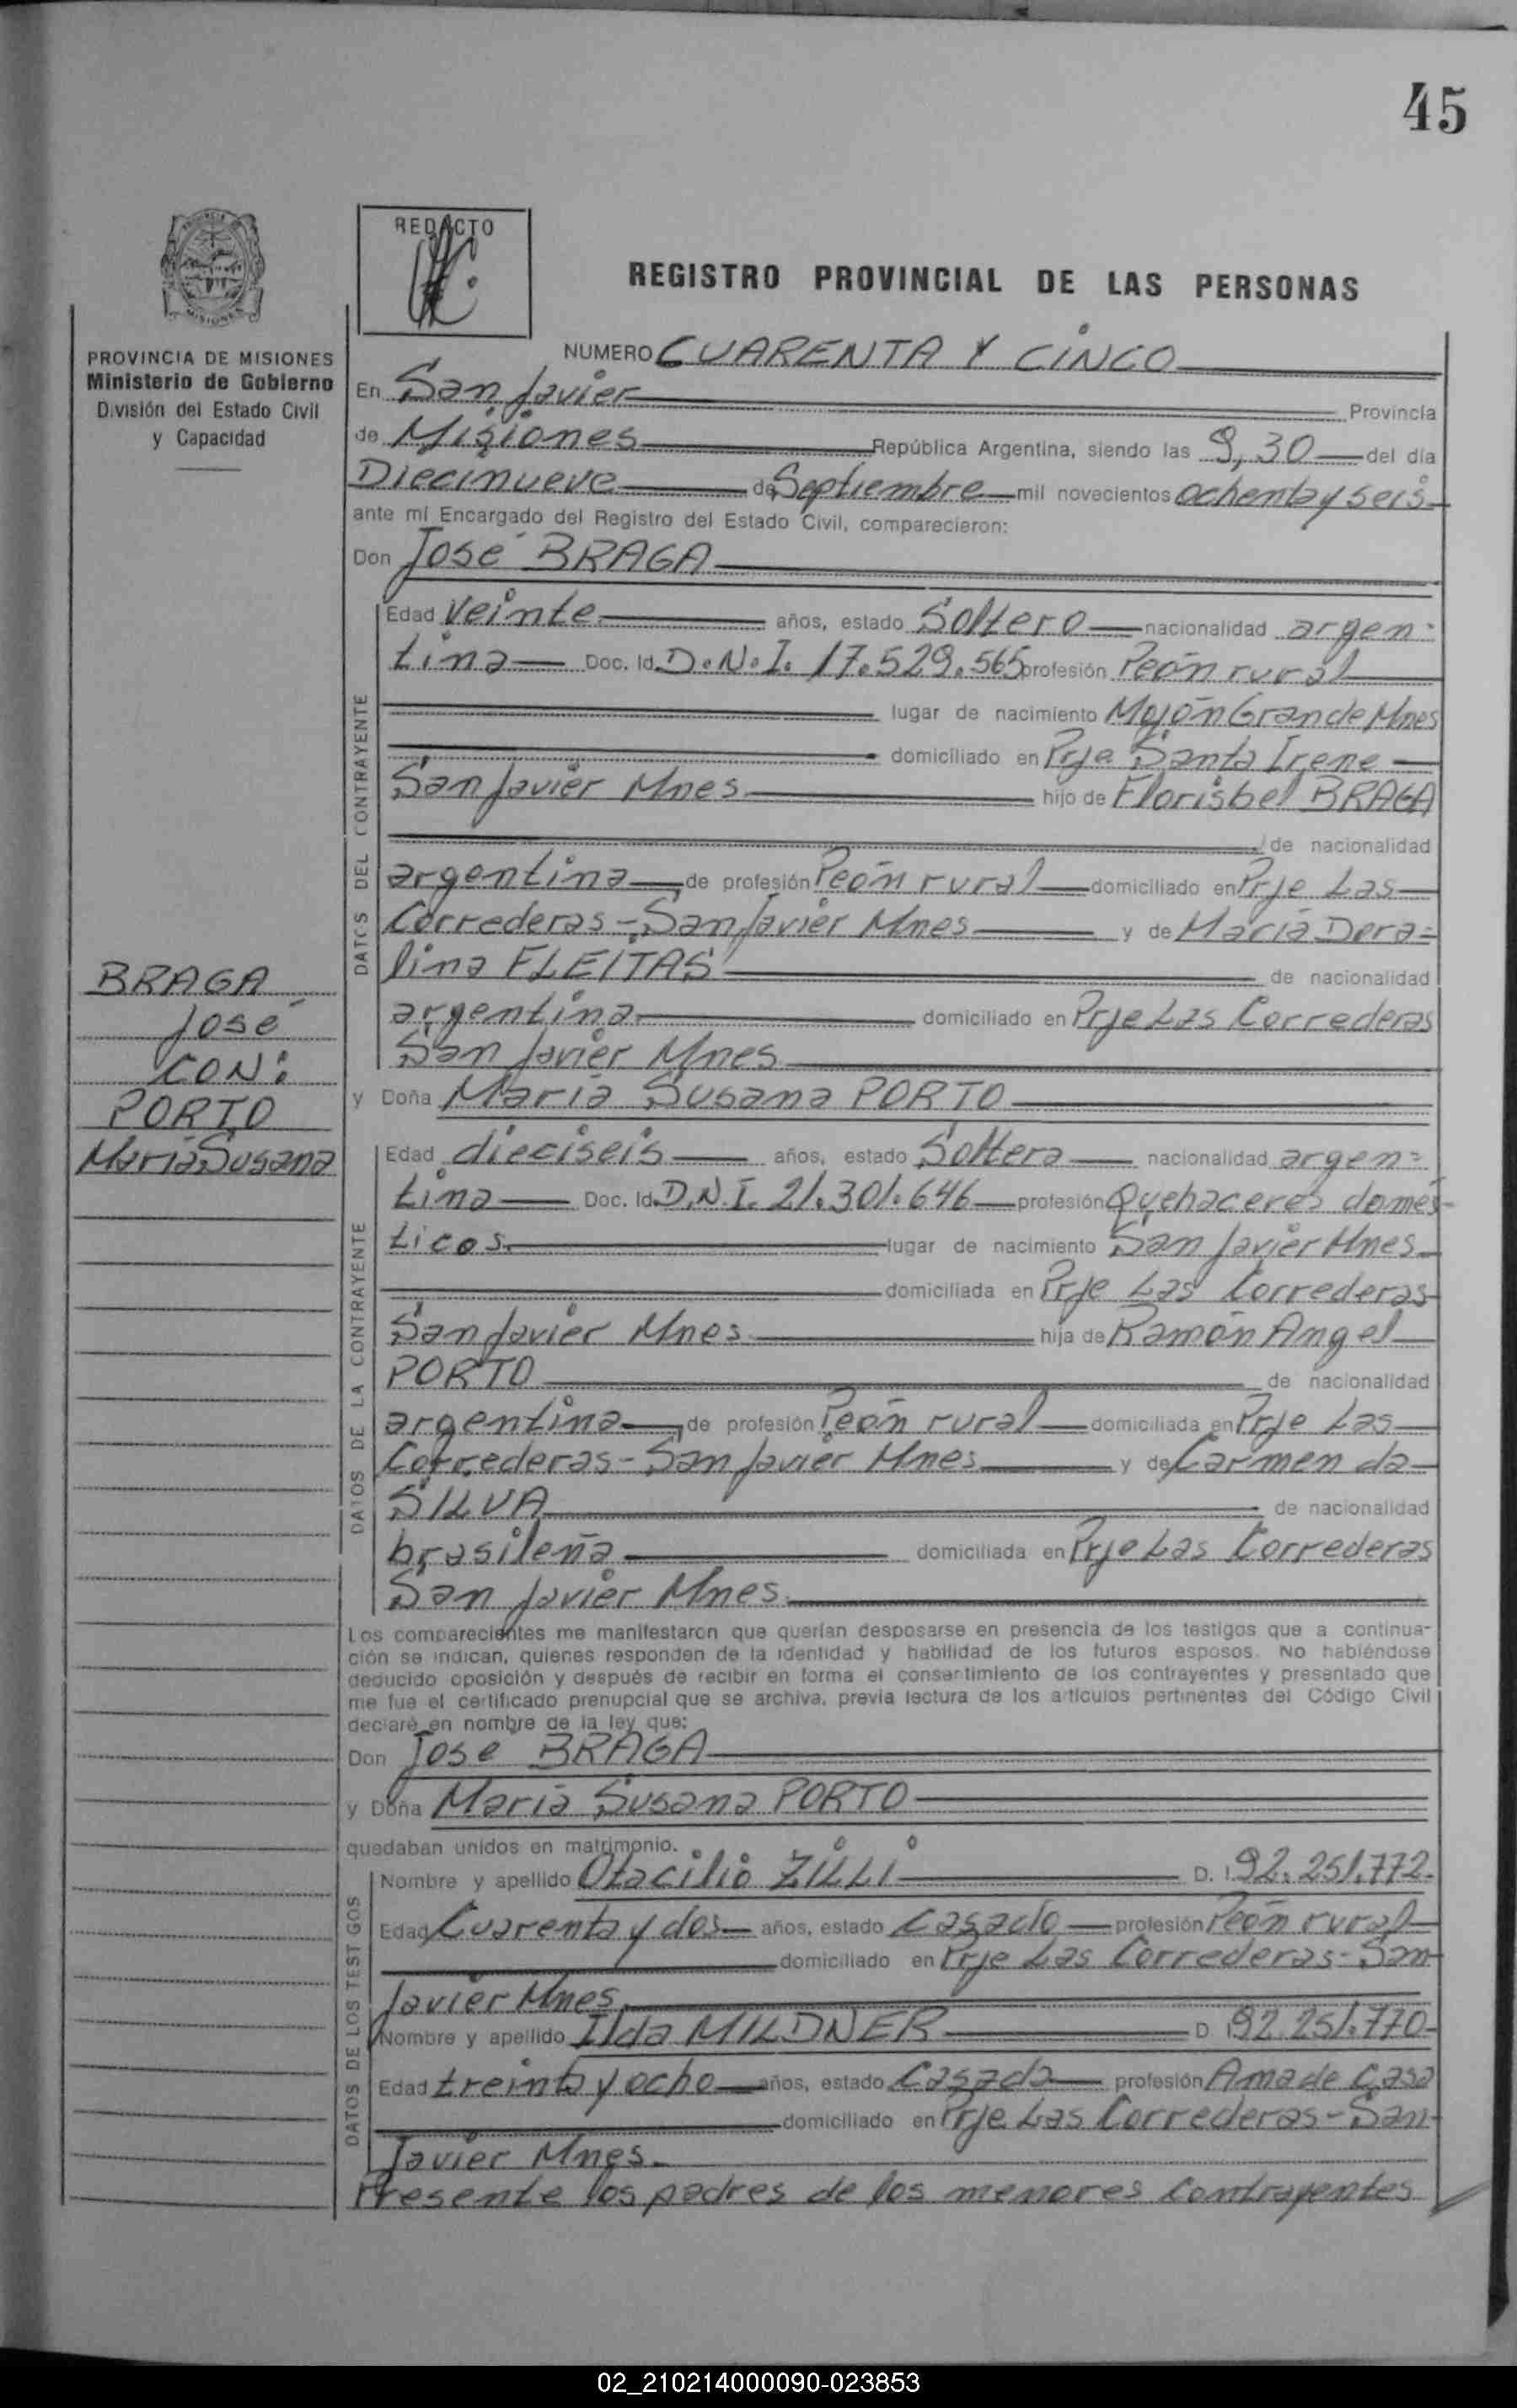 45
REDACTO
REGISTRO PROVINCIAL DE LAS PERSONAS
PROVINCIA DE MISIONES
Ministerio de Gobierno
División del Estado Civil
y Capacidad
NUMERO CUARENTA Y CINCO
En San Javier Provincia
de Misiones República Argentina, siendo las 9,30 del día
Diecinueve de Septiembre mil novecientos ochenta y seis
ante mí Encargado del Registro del Estado Civil, comparecieron:
Don José BRAGA
DATOS DEL CONTRAYENTE
Edad veinte años, estado Soltero nacionalidad argen-
tina Doc. Id. D.N.I. 17.529.565 profesión Peón rural
lugar de nacimiento Mojón Grande Mnes
domiciliado en Prje Santa Irene
San Javier Mnes hijo de Florisbel BRAGA
de nacionalidad
argentina de profesión Peón rural domiciliado en Prje Las
Correderas - San Javier Mnes y de María Dora-
lina FLEITAS de nacionalidad
argentina domiciliado en Prje Las Correderas
San Javier Mnes
BRAGA
José
CON:
PORTO
María Susana
y Doña María Susana PORTO
DATOS DE LA CONTRAYENTE
Edad dieciseis años, estado Soltera nacionalidad argen-
tina Doc. Id. D.N.I. 21.301.646 profesión Quehaceres domés-
ticos lugar de nacimiento San Javier Mnes
domiciliada en Prje Las Correderas
San Javier Mnes hija de Ramón Angel
PORTO de nacionalidad
argentina de profesión Peón rural domiciliada en Prje Las
Correderas - San Javier Mnes y de Carmen da
SILVA de nacionalidad
brasileña domiciliada en Prje Las Correderas
San Javier Mnes
Los comparecientes me manifestaron que querían desposarse en presencia de los testigos que a continua-
ción se indican, quienes responden de la identidad y habilidad de los futuros esposos. No habiéndose
deducido oposición y después de recibir en forma el consentimiento de los contrayentes y presentado que
me fue el certificado prenupcial que se archiva, previa lectura de los artículos pertinentes del Código Civil
declaré en nombre de la ley que:
Don José BRAGA
y Doña María Susana PORTO
quedaban unidos en matrimonio.
DATOS DE LOS TESTIGOS
Nombre y apellido Otacilio ZILLI D. I. 92.251.772
Edad Cuarenta y dos años, estado Casado profesión Peón rural
domiciliado en Prje Las Correderas - San
Javier Mnes
Nombre y apellido Ilda MILDNER D. I. 92.251.770
Edad treinta y ocho años, estado Casada profesión Ama de Casa
domiciliado en Prje Las Correderas - San
Javier Mnes.
Presente los padres de los menores Contrayentes
02_210214000090-023853